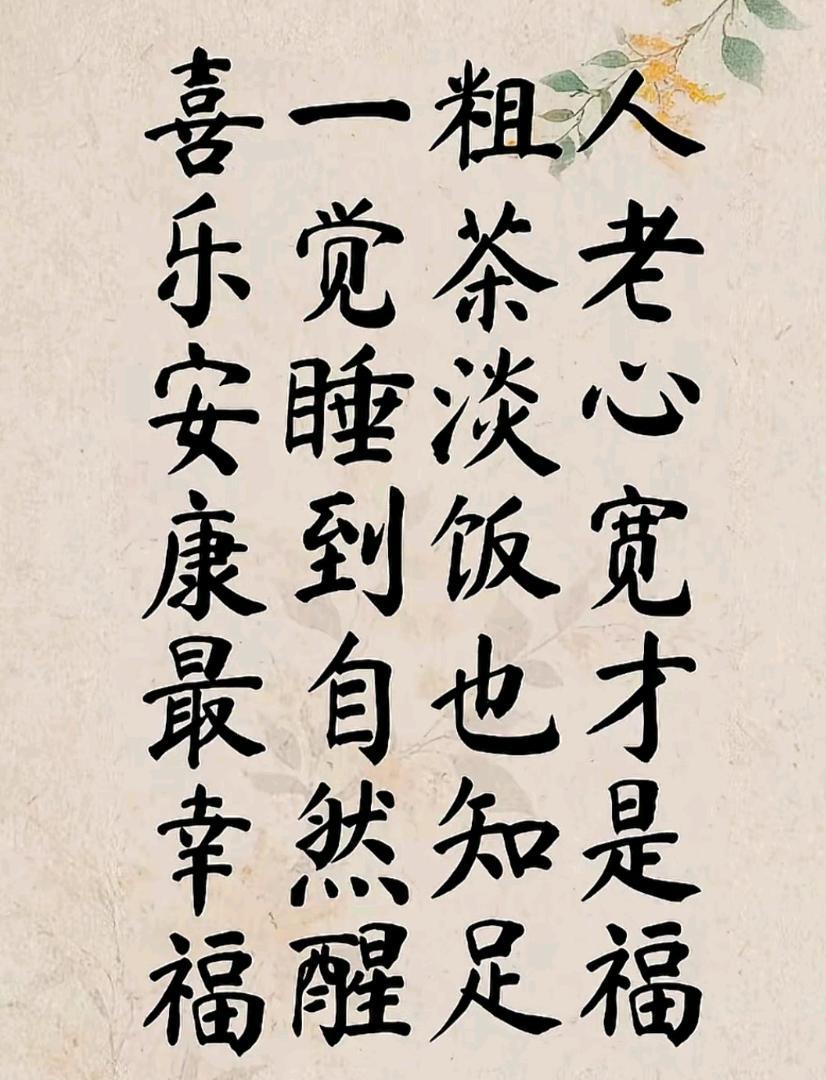 人老心宽才是福
粗茶淡饭也知足
一觉睡到自然醒
喜乐安康最幸福